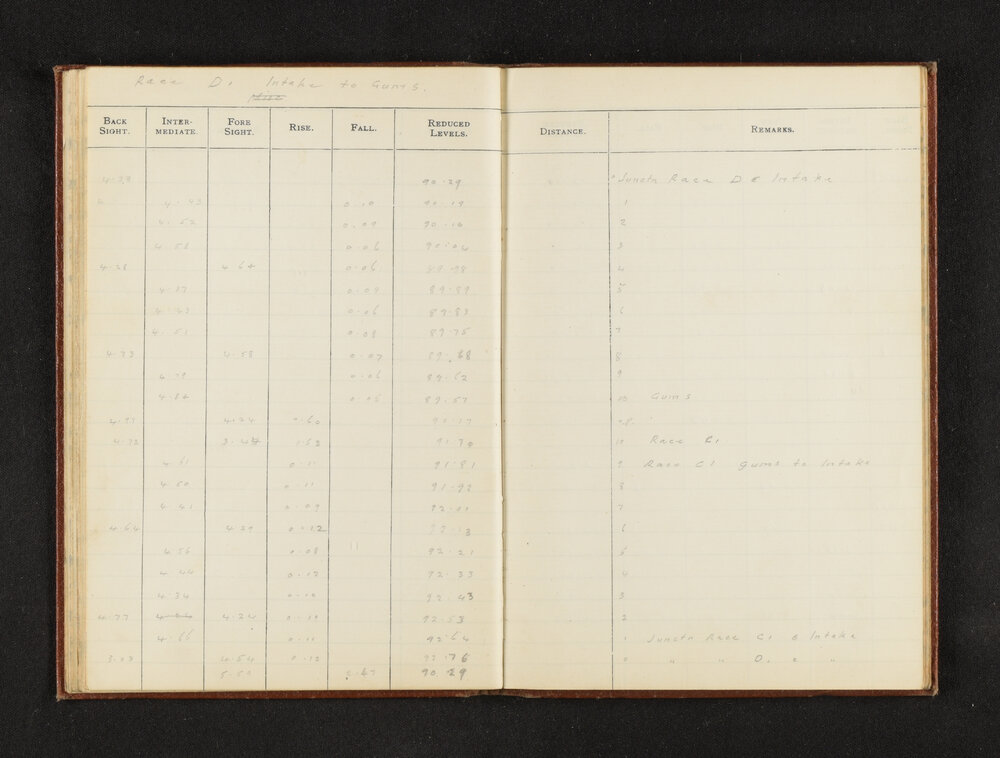 Race D. Intake to Gums.
BACK SIGHT. INTER-MEDIATE. FORE SIGHT. RISE. FALL. REDUCED LEVELS. DISTANCE. REMARKS.
4.39 90.29 Junctn Race D & Intake
0.10 90.19 1
4.52 0.09 90.10 2
4.58 0.06 90.04 3
4.28 4.64 0.06 89.98 4
4.37 0.09 89.89 5
4.43 0.06 89.83 6
4.51 0.08 89.75 7
4.73 4.58 0.07 89.68 8
4.79 0.06 89.62 9
4.84 0.05 89.57 10 Gums
4.97 4.24 0.60 90.17
4.72 3.44 1.53 91.70 10 Race C1
4.61 0.11 91.81 9 Race C1 gums to Intake
4.50 0.11 91.92 8
4.41 0.09 92.01 7
4.64 4.29 0.12 92.13 6
4.56 0.08 92.21 5
4.44 0.12 92.33 4
4.34 0.10 92.43 3
4.77 4.24 0.10 92.53 2
4.66 0.11 92.64 1 Junctn Race C1 & Intake
4.54 0.12 92.76 0 " " D. & "
90.29